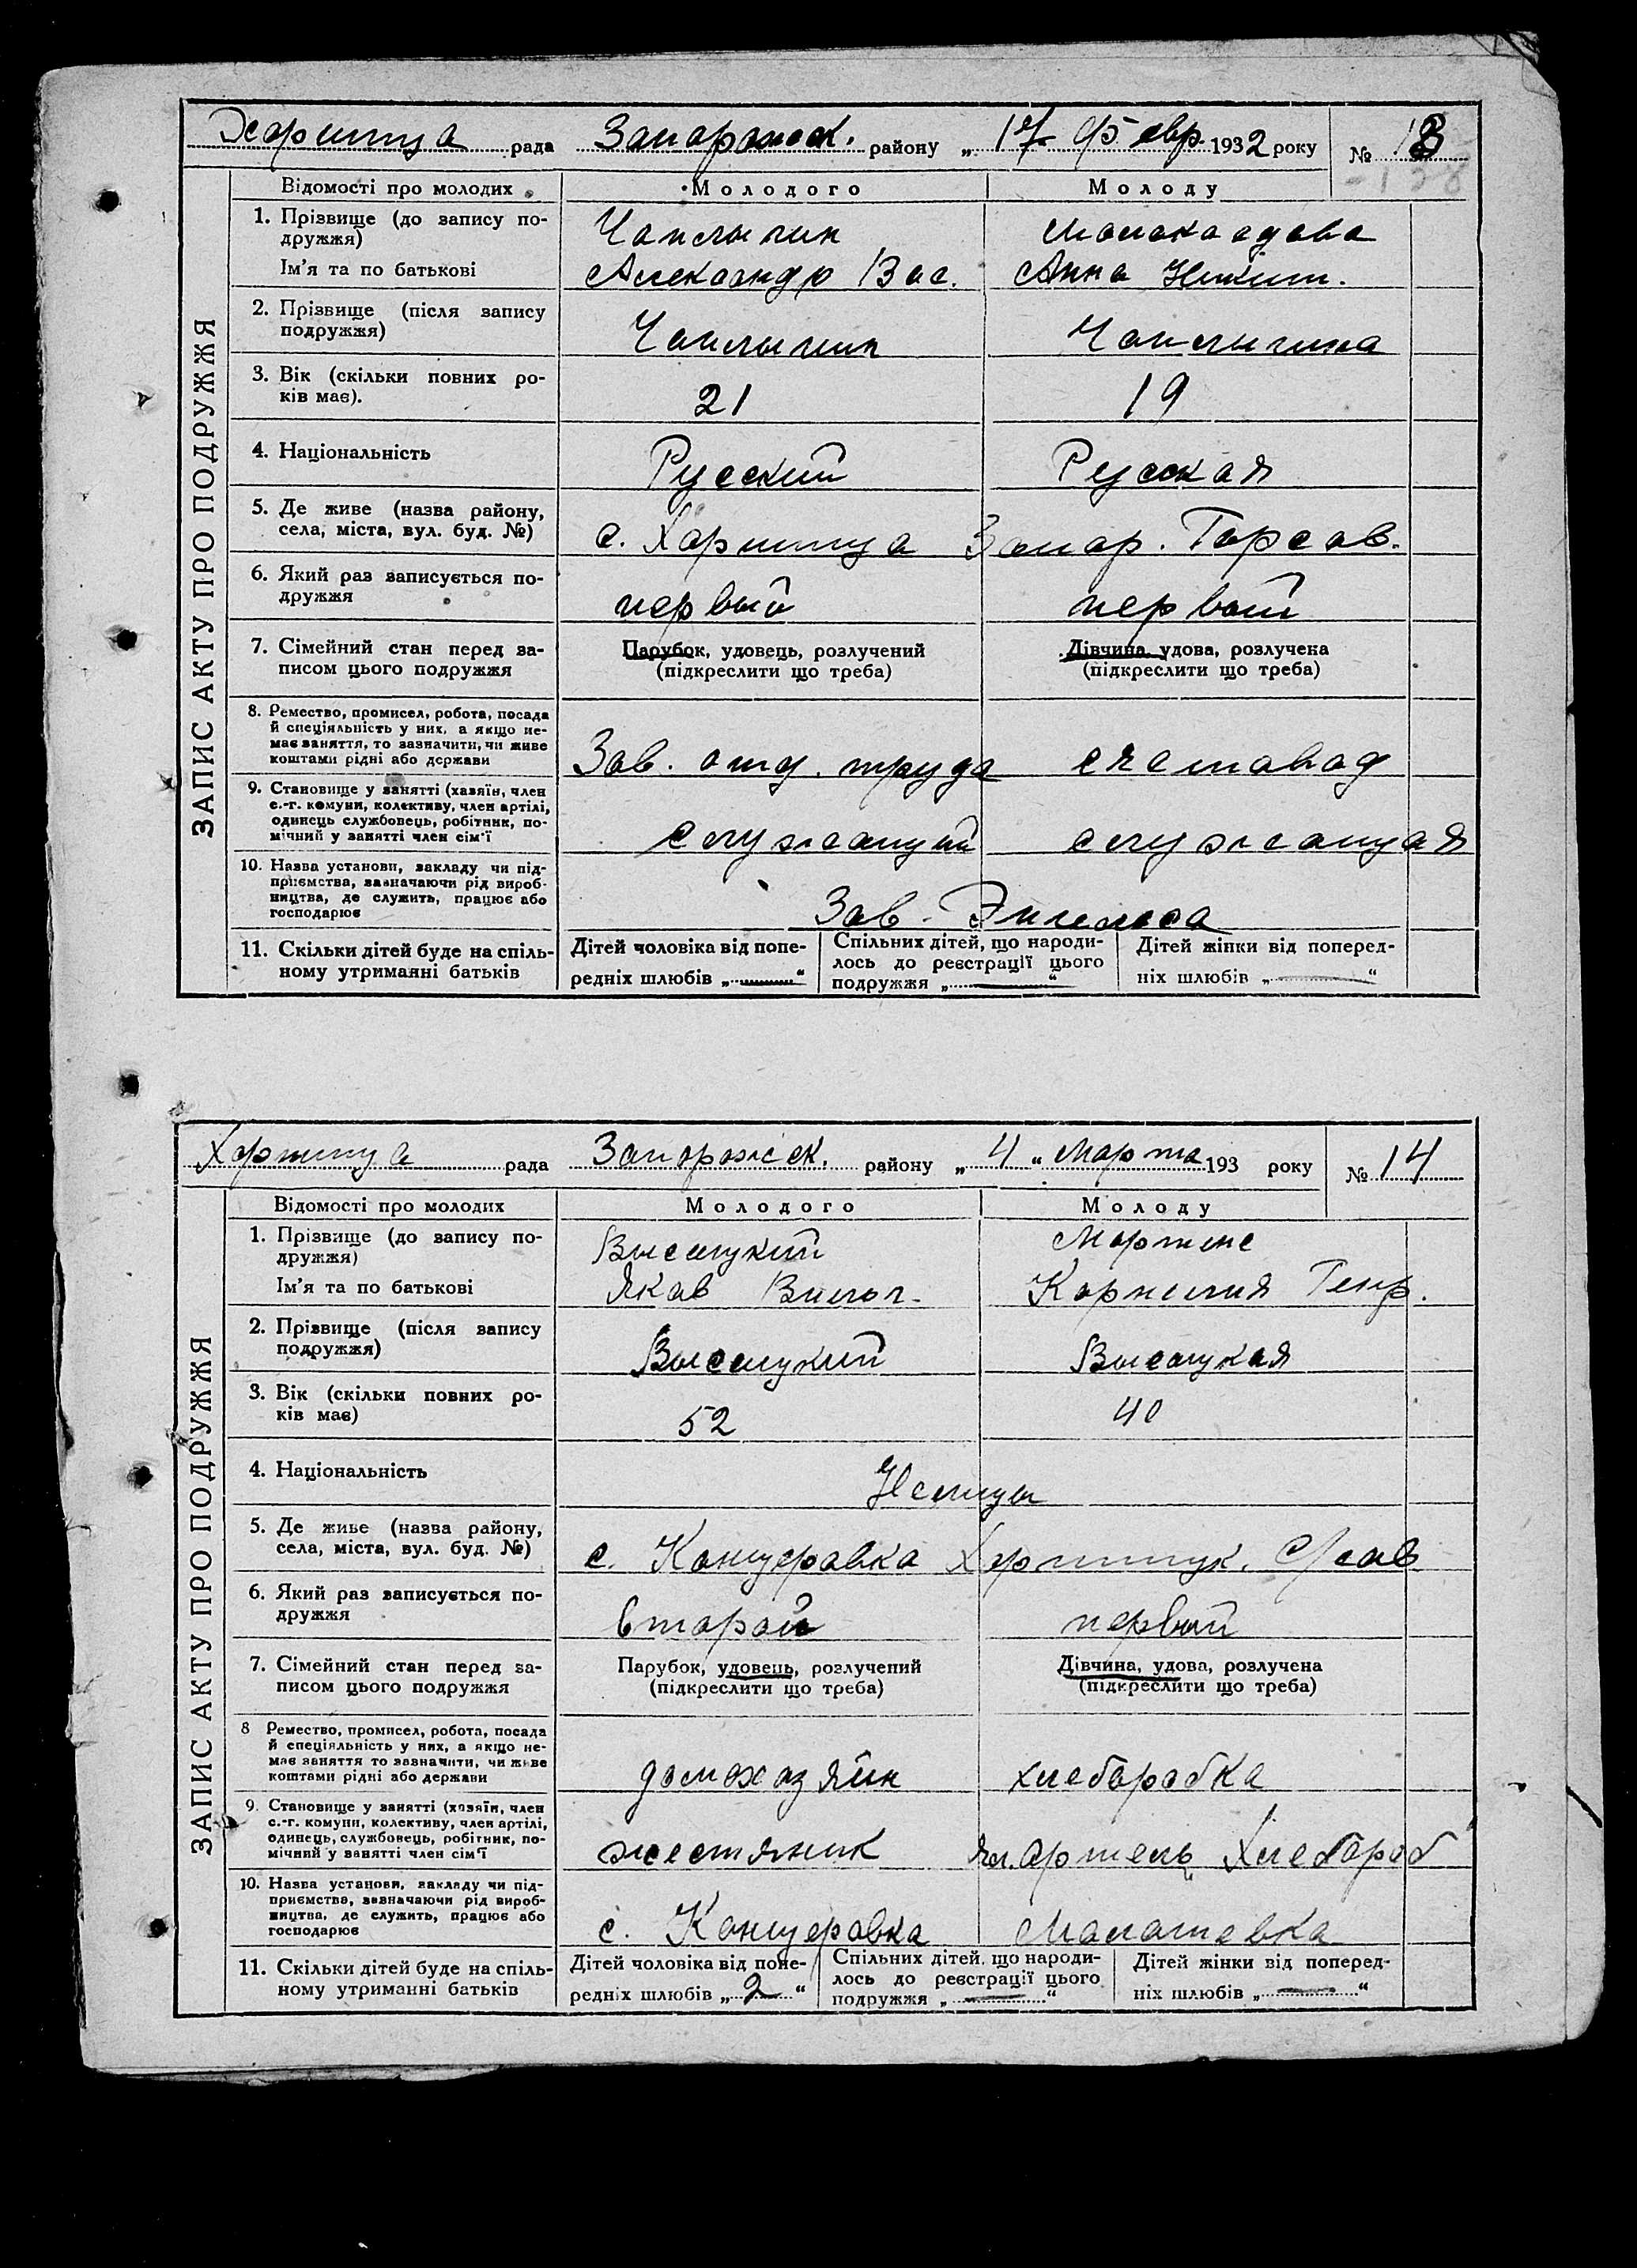 Хортица рада Запорожск. району „ 17 февр. 1932 року № 13
Відомості про молодих Молодого Молоду
1. Прізвище (до запису по-
дружжя) Чаплыгин Молокоедова
Ім'я та по батькові Александр Вас. Анна Никит.
2. Прізвище (після запису
подружжя) Чаплыгин Чаплыгина
3. Вік (скільки повних ро-
ків має). 21 19
4. Національність Русский Русская
5. Де живе (назва району,
села, міста, вул. буд. №) с. Хортица Запор. Горсов.
6. Який раз записується по-
дружжя первый первый
7. Сімейний стан перед за-
писом цього подружжя
Парубок, удовець, розлучений
(підкреслити що треба)
Дівчина, удова, розлучена
(підкреслити що треба)
8. Ремество, промисел, робота, посада
й спеціяльність у них, а якщо не-
має заняття, то зазначити, чи живе
коштами рідні або держави
Зав. отд. труда счетовод
9. Становище у занятті (хазяїн, член
с.-г. комуни, колективу, член артілі,
одинець службовець, робітник, по-
мічний у занятті член сім'ї
служащий служащая
10. Назва установи, закладу чи під-
приємства, зазначаючи рід вироб-
ництва, де служить, працює або
господарює
Зав. Энгельса
11. Скільки дітей буде на спіль-
ному утриманні батьків
Дітей чоловіка від попе-
редніх шлюбів „ — “
Спільних дітей, що народи-
лось до реєстрації цього
подружжя „ — “
Дітей жінки від поперед-
ніх шлюбів „ — “
ЗАПИС АКТУ ПРО ПОДРУЖЖЯ
Хортица рада Запорожск. району „ 4 “ Марта 193 року № 14
Відомості про молодих Молодого Молоду
1. Прізвище (до запису по-
дружжя) Мартенс
Ім'я та по батькові Яков Корнелия Генр.
2. Прізвище (після запису
подружжя)
3. Вік (скільки повних ро-
ків має) 52 40
4. Національність Немцы
5. Де живе (назва району,
села, міста, вул. буд. №) с. Канцеровка Хортицк. с/сов
6. Який раз записується по-
дружжя второй первый
7. Сімейний стан перед за-
писом цього подружжя
Парубок, удовець, розлучений
(підкреслити що треба)
Дівчина, удова, розлучена
(підкреслити що треба)
8 Ремество, промисел, робота, посада
й спеціяльність у них, а якщо не-
має заняття то зазначити, чи живе
коштами рідні або держави
домохозяйн хлеборобка
9. Становище у занятті (хазяїн, член
с.-г. комуни, колективу, член артілі,
одинець, службовець, робітник, по-
мічний у занятті член сім'ї
жестяник чл. артель Хлебороб
10. Назва установи, закладу чи під-
приємства, зазначаючи рід вироб-
ництва, де служить, працює або
господарює
с. Канцеровка
11. Скільки дітей буде на спіль-
ному утриманні батьків
Дітей чоловіка від попе-
редніх шлюбів „ 2 “
Спільних дітей, що народи-
лось до реєстрації цього
подружжя „ — “
Дітей жінки від поперед-
ніх шлюбів „ — “
ЗАПИС АКТУ ПРО ПОДРУЖЖЯ